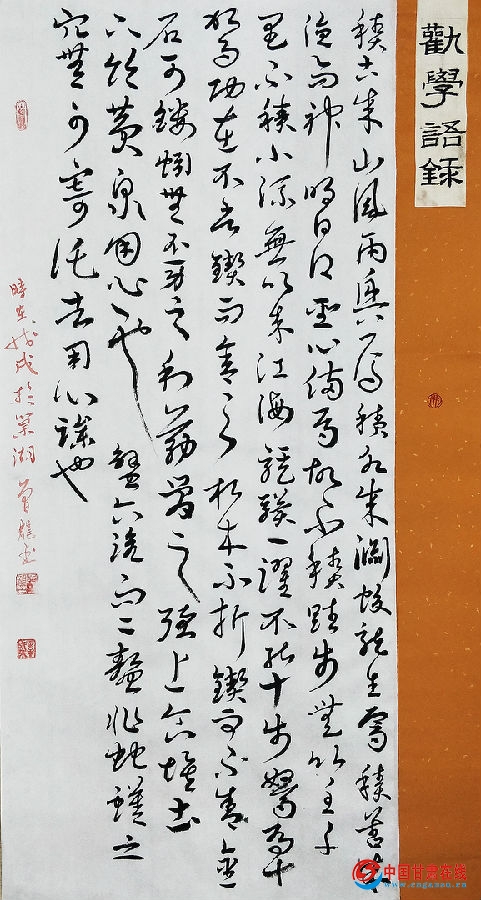 勸學語錄
積土成山風雨興焉積水成淵蛟龍生焉積善成
德而神明自得聖心備焉故不積跬步無以至千
里不積小流無以成江海騏驥一躍不能十步駑馬十
駕功在不舍鍥而舍之朽木不折鍥而不舍金
石可鏤蚓無爪牙之利筋骨之強上食埃土
下飲黃泉用心一也蟹六跪而二螯非蛇蟺之
穴無可寄託者用心躁也
時在戊戌於巢湖
中国甘肃在线